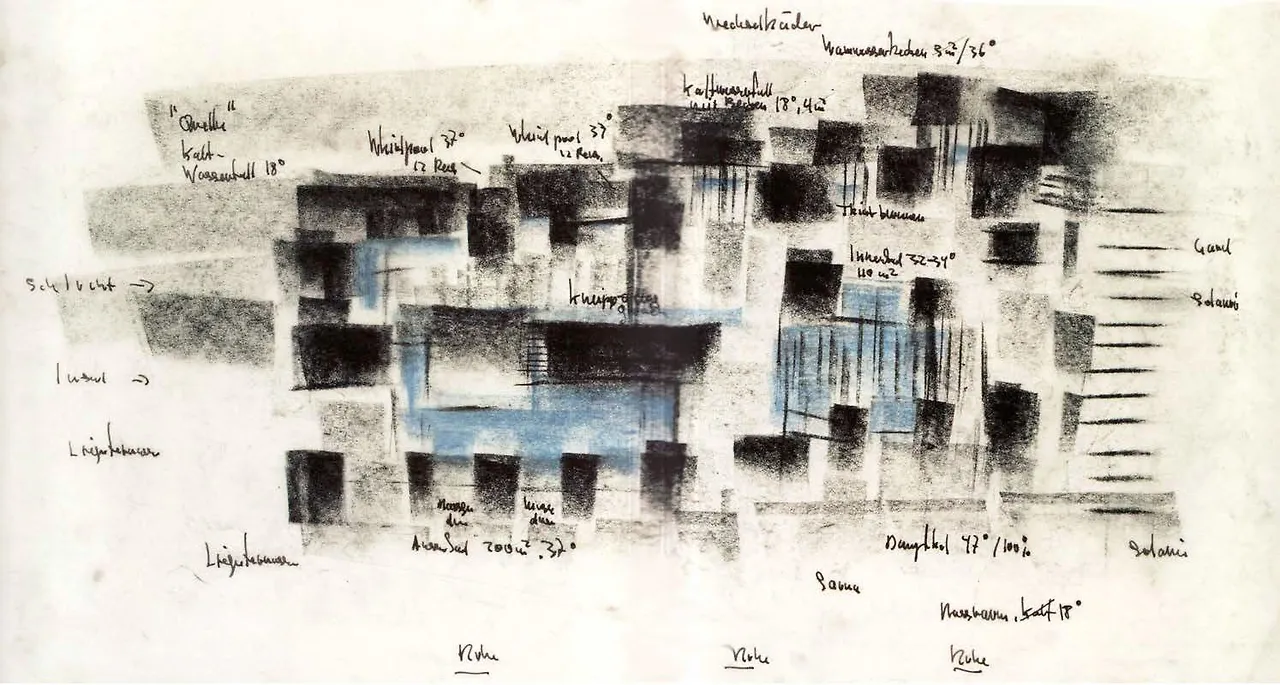 Wechselbäder
Warmwasserbecken 9m²/36°
Kaltwasserfall
mit Becken 18°, 4m²
"Quelle"
Kalt-
Wasserfall 18°
Whirlpool 37°
12 Pers.
Whirlpool 37°
12 Pers.
Trinkbrunnen
Innenbad 32-34°
110 m²
Schlucht →
Kneippgang
Solarium
Insel →
Liegeterrasse
Liegeterrasse
Aussenbad 200m². 37°
Dampfbad 47°/100%
Solaris
Sauna
Kalt 18°
Ruhe
Ruhe
Ruhe